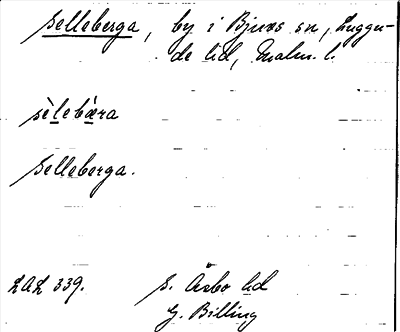 Selleberga, by i Bjuvs sn, Luggu-
de hd, Malm. l.
sèlebæ̀ra
Selleberga.
LAL 339.
S. Åsbo hd
G. Billing